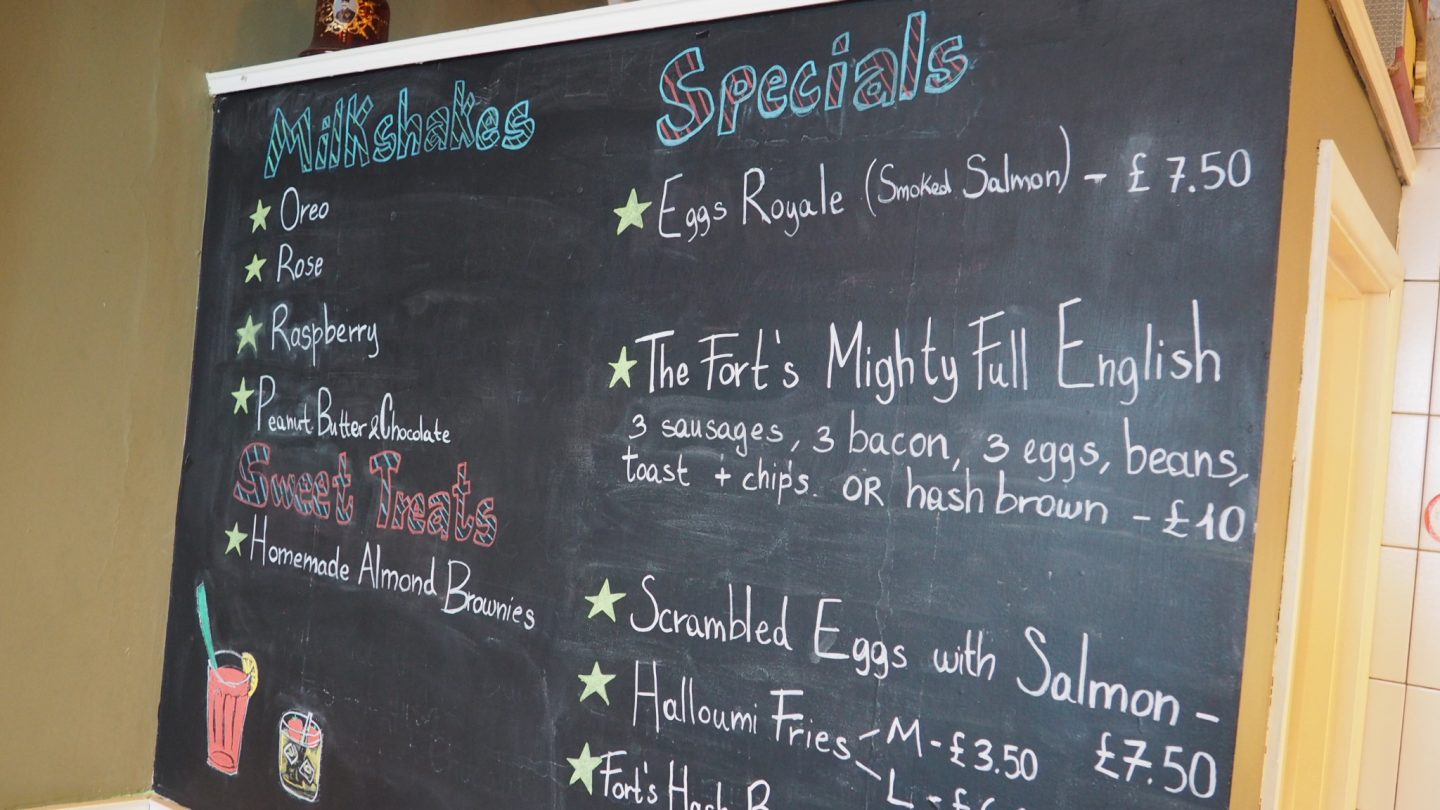 Milkshakes
Oreo
Rose
Raspberry
Peanut Butter & Chocolate
Sweet Treats
Homemade Almond Brownies
Specials
Eggs Royale (Smoked Salmon) - £7.50
The Fort's Mighty Full English
3 sausages, 3 bacon, 3 eggs, beans,
toast + chips. OR hash brown - £10
Scrambled Eggs with Salmon -
£7.50
Halloumi Fries M - £3.50
L - £
Fort's Hash